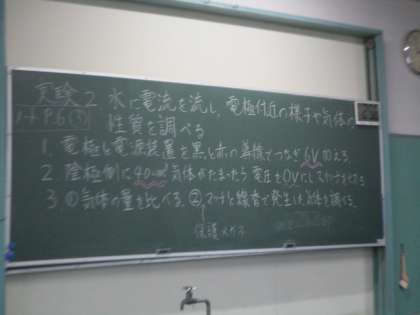 実験2. 水に電流を流し、電極付近の様子や気体の
性質を調べる
1. 電極と電源装置を黒と赤の導線でつなぎ 6V加える。
2. 陰極側に 気体がたまったら 電圧を0Vにしスイッチを
3. ①気体の量を比べる。②マッチと線香で発生した気体を調べる。
保護メガネ